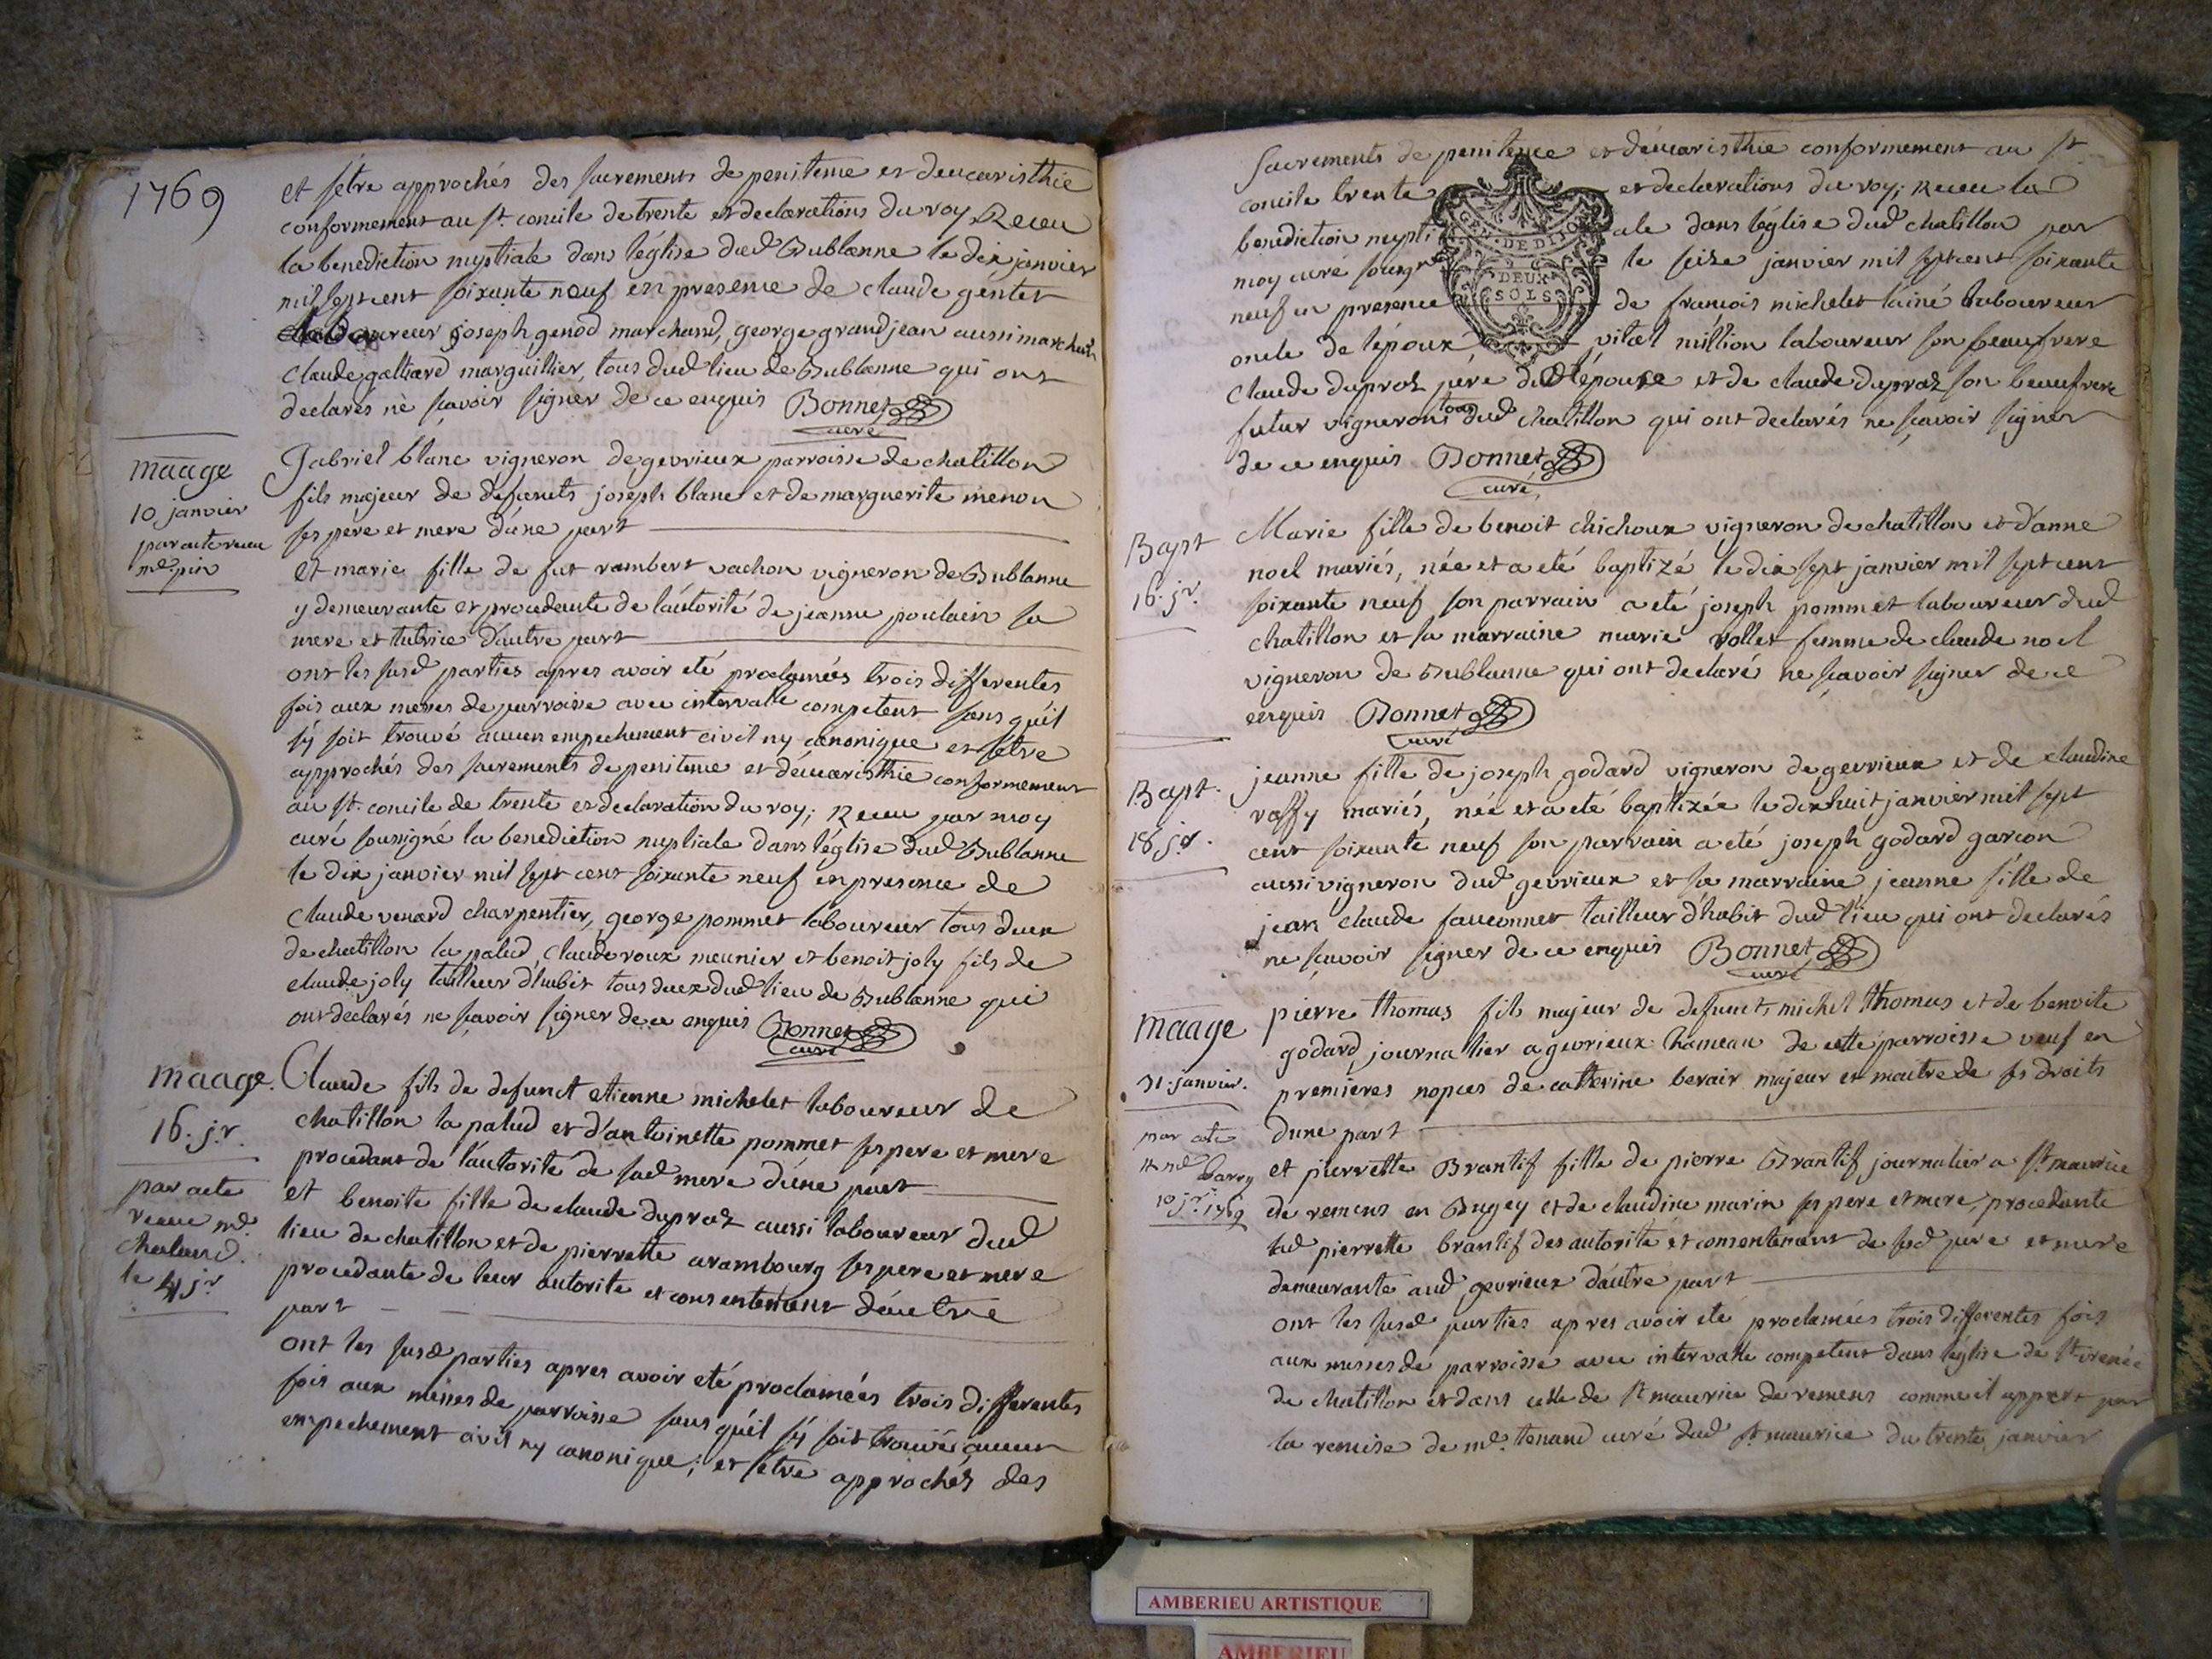 1769
et sêtre approchés des sacrements de penitence et deucaristhie
conformement au st. concile de trente et declarations du roy Receu
la benediction nuptiale dans léglise dud Bublanne le dix janvier
mil sept cent soixante neuf en presence de claude gentet
laboureur joseph genod marchand, george grandjean aussi marchand
claude galliard marguillier, tous dud lieu de Bublanne qui ont
declarés nè sçavoir signer de ce enquis Bonnet
curé
maage
10 janvier
par acte receu
me. pin
Gabriel blanc vigneron de gevrieux parroisse de chatillon
fils majeur de defuncts joseph blanc et de marguerite menon
ses pere et mere d'une part
Et marie fille de fut rambert vachon vigneron de Bublanne
y demeurante et procedente de láutorité de jeanne poulain sa
mere et tutrice d'autre part
ont les susd parties apres avoir eté proclamées trois differentes
fois aux messes de parroisse avec intervalle competent sans qu'il
s'y soit trouvé aucun empechement civil ny canonique et sêtre
approchés des sacrements de penitence et déucaristhie conformement
au st. concile de trente et declaration du roy; Receu par moy
curé soussigné la benediction nuptiale dans léglise dud Bublanne
le dix janvier mil sept cent soixante neuf en presence de
claude venard charpentier, george pommet laboureur tous deux
de chatillon la palud, claude roux meunier et benoit joly fils de
claude joly tailleur d'habit tous deux dud lieu de Bublanne qui
ont declarés ne sçavoir signer de ce enquis Bonnet
curé
maage.
16. jr.
par acte
receu me
chaland.
le 4 jr
Claude fils de defunct etienne michelet laboureur de
chatillon la palud et d'antoinette pommet ses pere et mere
procedant de láutorité de sad mere d'une part
et benoite fille de claude dupraz aussi laboureur dud
lieu de chatillon et de pierrette arambourg ses pere et mere
procedante de leur autorité et consentement d'autre
part
ont les susd parties apres avoir eté proclamées trois differentes
fois aux messes de parroisse sans qu'il s'y soit trouvé aucun
empechement civil ny canonique; et sêtre approchés des
sacrements de penitence et déucaristhie conformement au st
concile trente et declarations du roy; Receu la
benediction nuptiale dans léglise dud chatillon par
moy curé sousigné le seize janvier mil sept cent soixante
neuf en presence de francois michelet lainé laboureur
oncle de lépoux, vital million laboureur son beaufrere
claude dupraz pere de lépouse et de claude dupraz son beaufrere
futur vignerons tous dud chatillon qui ont declarés ne sçavoir signer
de ce enquis Bonnet
curé,
GEN. DE DIJON
DEUX
SOLS
Bapt
16. jr.
Marie fille de benoit chichoux vigneron de chatillon et d'anne
noel mariés, née et a eté baptizé le dix sept janvier mil sept cent
soixante neuf son parrain a eté joseph pommet laboureur dud
chatillon et sa marraine marie rollet femme de claude noel
vigneron de Bublanne qui ont declaré ne sçavoir signer de ce
enquis Bonnet
curé
Bapt.
18 jr.
jeanne fille de joseph godard vigneron de gevrieux et de claudine
raffy mariés, née et a eté baptizée le dix huit janvier mil sept
cent soixante neuf son parrain a eté joseph godard garcon
aussi vigneron dud gevrieux et sa marraine jeanne fille de
jean claude fauconnet tailleur d'habit dud lieu qui ont declarés
ne sçavoir signer de ce enquis Bonnet
curé
maage
31. janvier.
par acte
me Barry
10 jr. 1769
pierre thomas fils majeur de defunct michel thomas et de benoite
godard journalier a gevrieux hameau de cette parroisse veuf en
premieres nopces de catherine berair majeur et maitre de ses droits
dune part
et pierrette Brantif fille de pierre Brantif journalier a st. maurice
de remens en Bugey et de claudine marin ses pere et mere, procedante
lad pierrette brantif des autorité et consentement de sesd pere et mere
demeurante aud gevrieux d'autre part
ont les susd parties apres avoir eté proclamées trois differentes fois
aux messes de parroisse avec intervalle competent dans léglise de st irenée
de chatillon et dans celle de st maurice de remens comme il appert par
la remise de me. tenand curé dud st maurice du trente janvier
AMBERIEU ARTISTIQUE
AMBERIEU